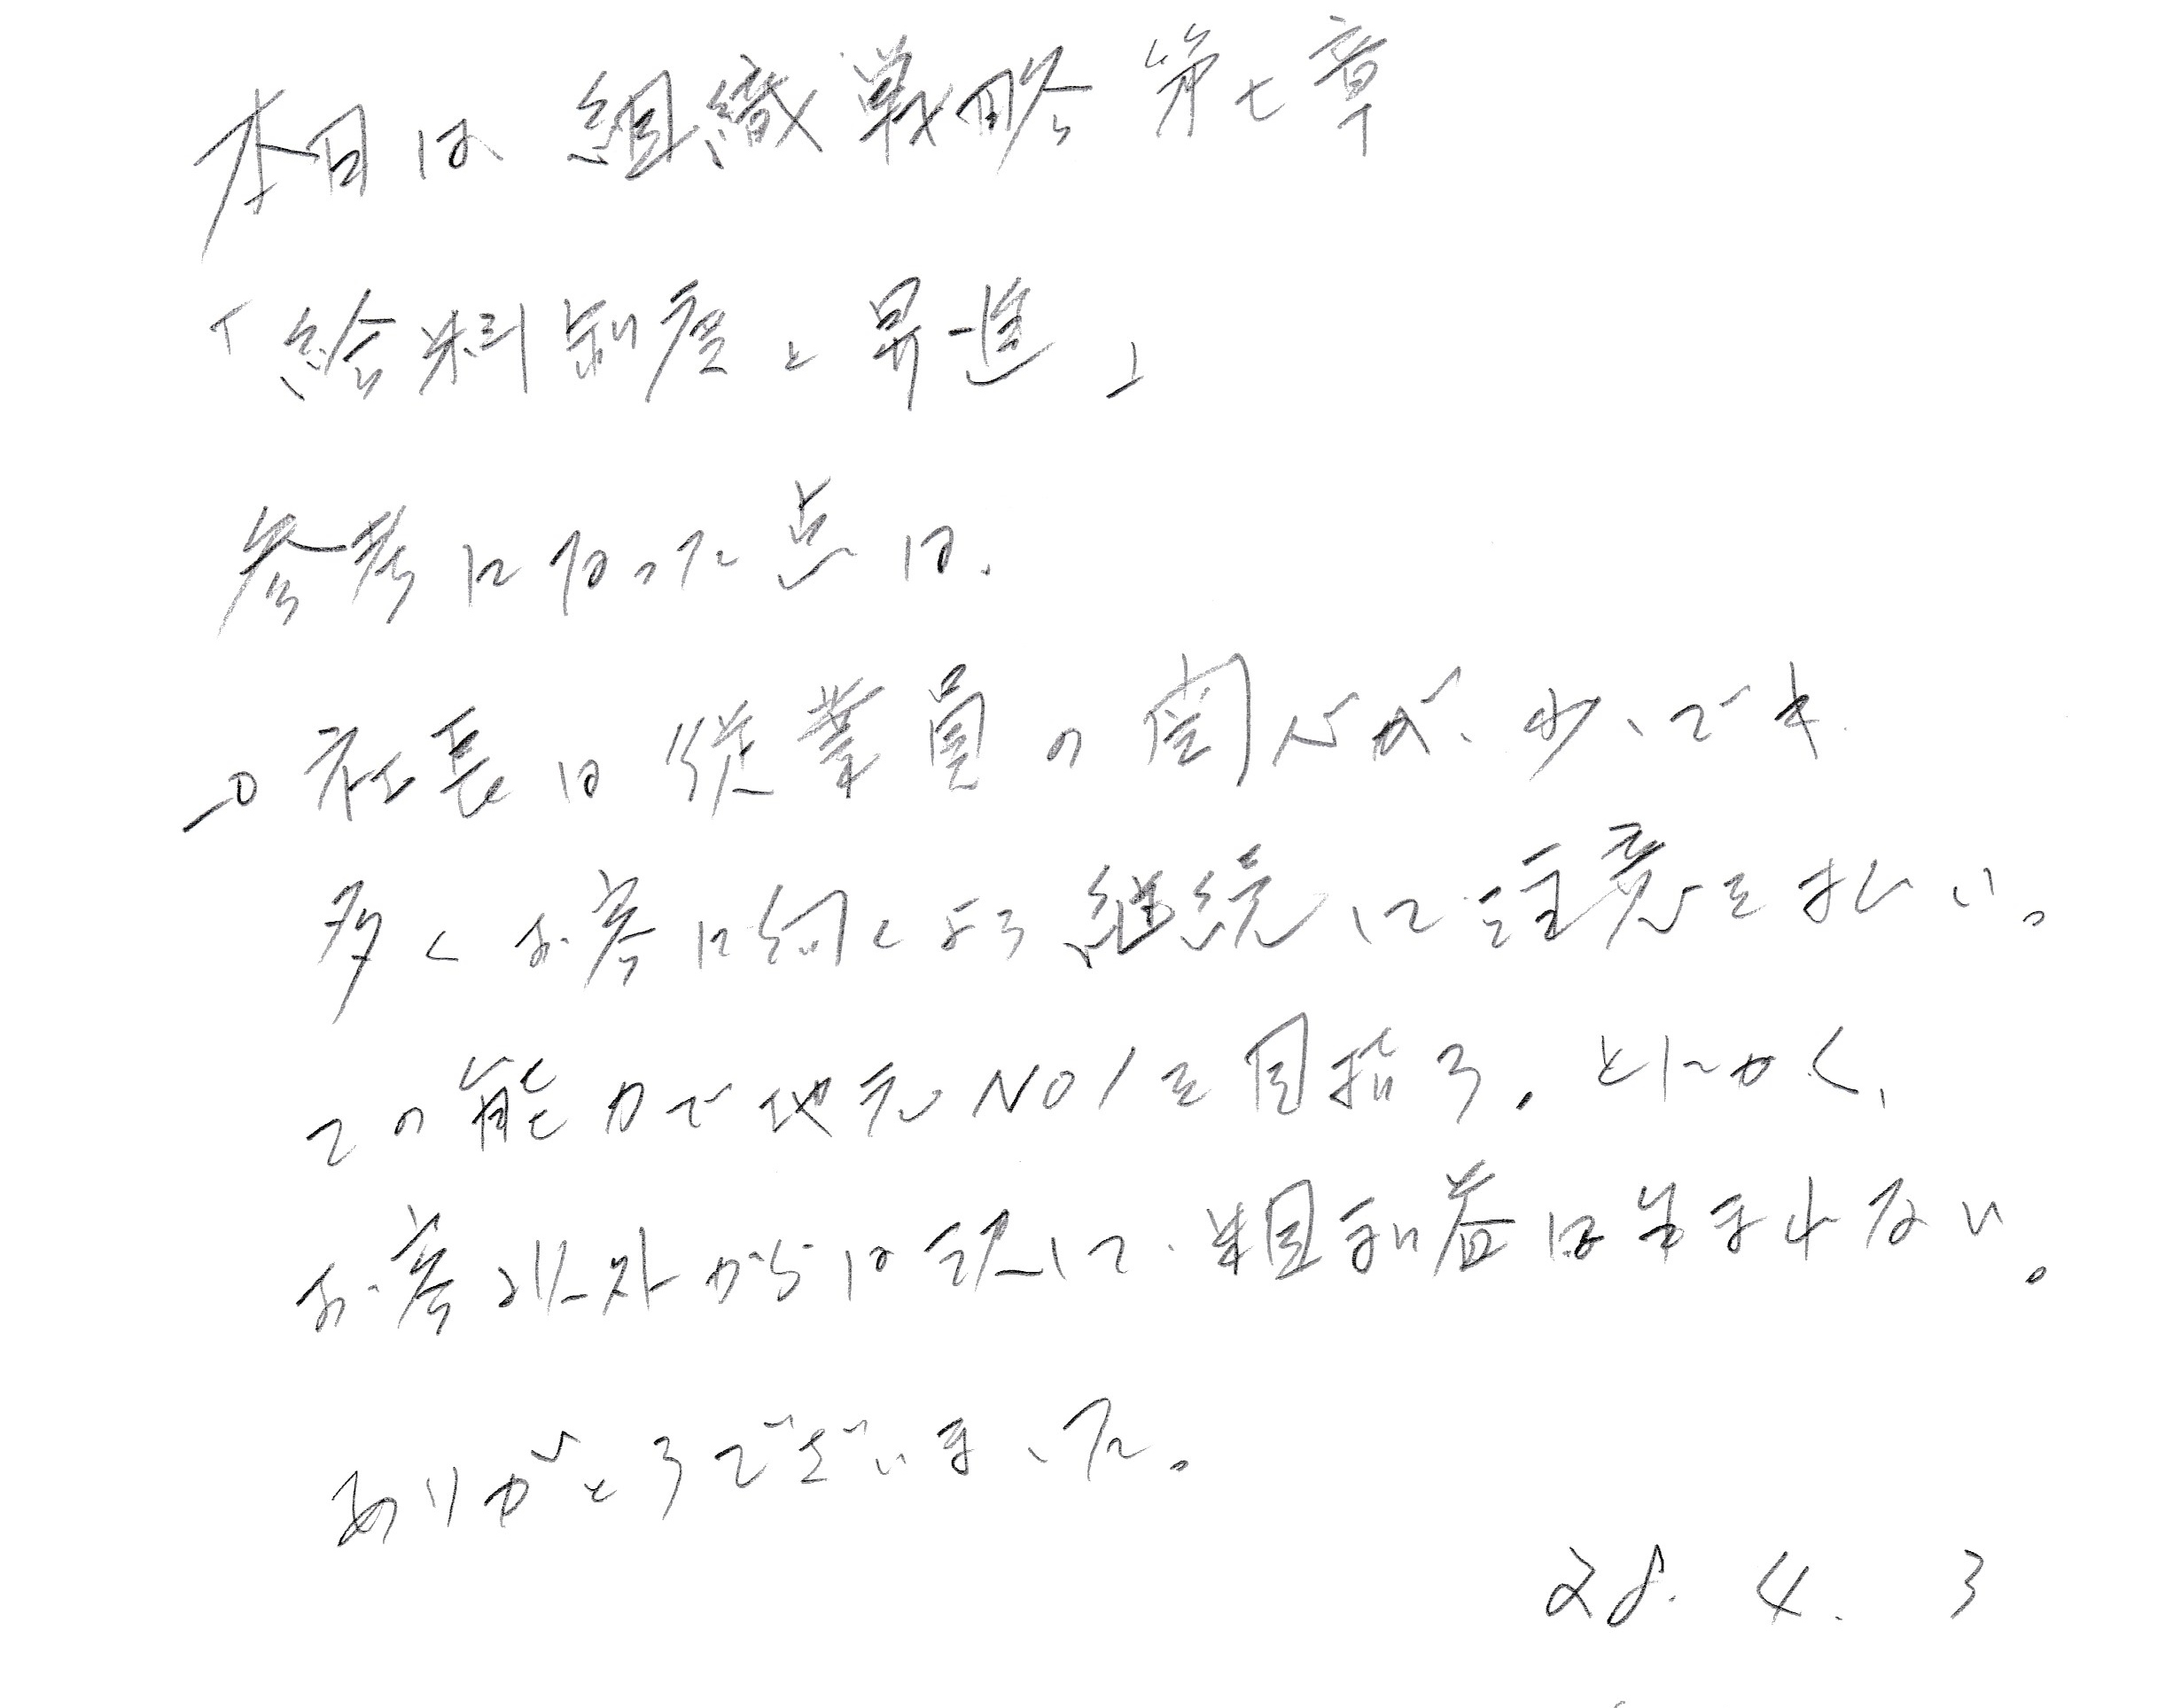 本日は組織戦略第七章
「給料制度と昇進」
参考になった点は、
→社長は従業員の関心が、少しでも
多くお客に向くよう継続して注意を払い。
この能力で地元NO1を目指う。とにかく、
お客以外からは決して粗利益は生まれない。
ありがとうございました。
28. 4. 3